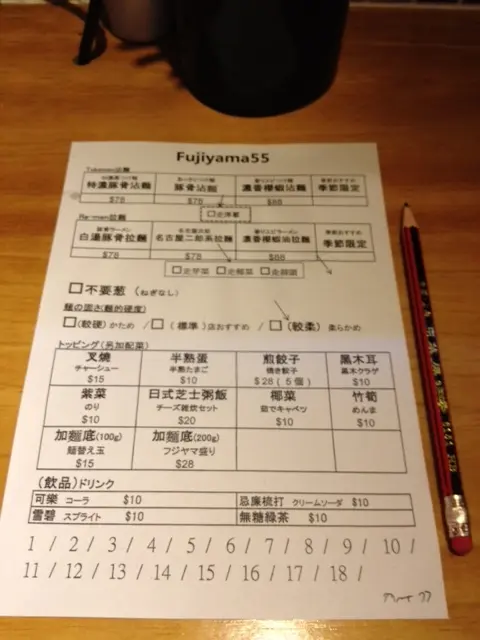 Fujiyama55
Tukemen沾麵
特濃豚骨沾麵 豚骨沾麵 濃香櫻蝦沾麵 季節限定
$78 $78 $88
Ra-men拉麵
豚骨ラーメン
白湯豚骨拉麵 名古屋二郎系拉麵 濃香櫻蝦油拉麵 季節限定
$78 $78 $88
□不要葱 (ねぎなし)
麺の固さ(麵的硬度)
□(較硬)かため / □(標準)店おすすめ / □(較柔)柔らかめ
トッピング(另加配菜)
叉燒 半熟蛋 煎餃子 黑木耳
チャーシュー 半熟たまご 焼き餃子 黒木クラゲ
$15 $10 $28(5個) $10
紫菜 日式芝士粥飯 椰菜 竹筍
のり チーズ雑炊セット 茹でキャベツ めんま
$10 $20 $10 $10
加麵底(100g) 加麵底(200g)
麺替え玉 フジヤマ盛り
$15 $28
(飲品)ドリンク
可樂 コーラ $10 忌廉梳打 クリームソーダ $10
雪碧 スプライト $10 無糖綠茶 $10
1 / 2 / 3 / 4 / 5 / 6 / 7 / 8 / 9 / 10 /
11 / 12 / 13 / 14 / 15 / 16 / 17 / 18 /